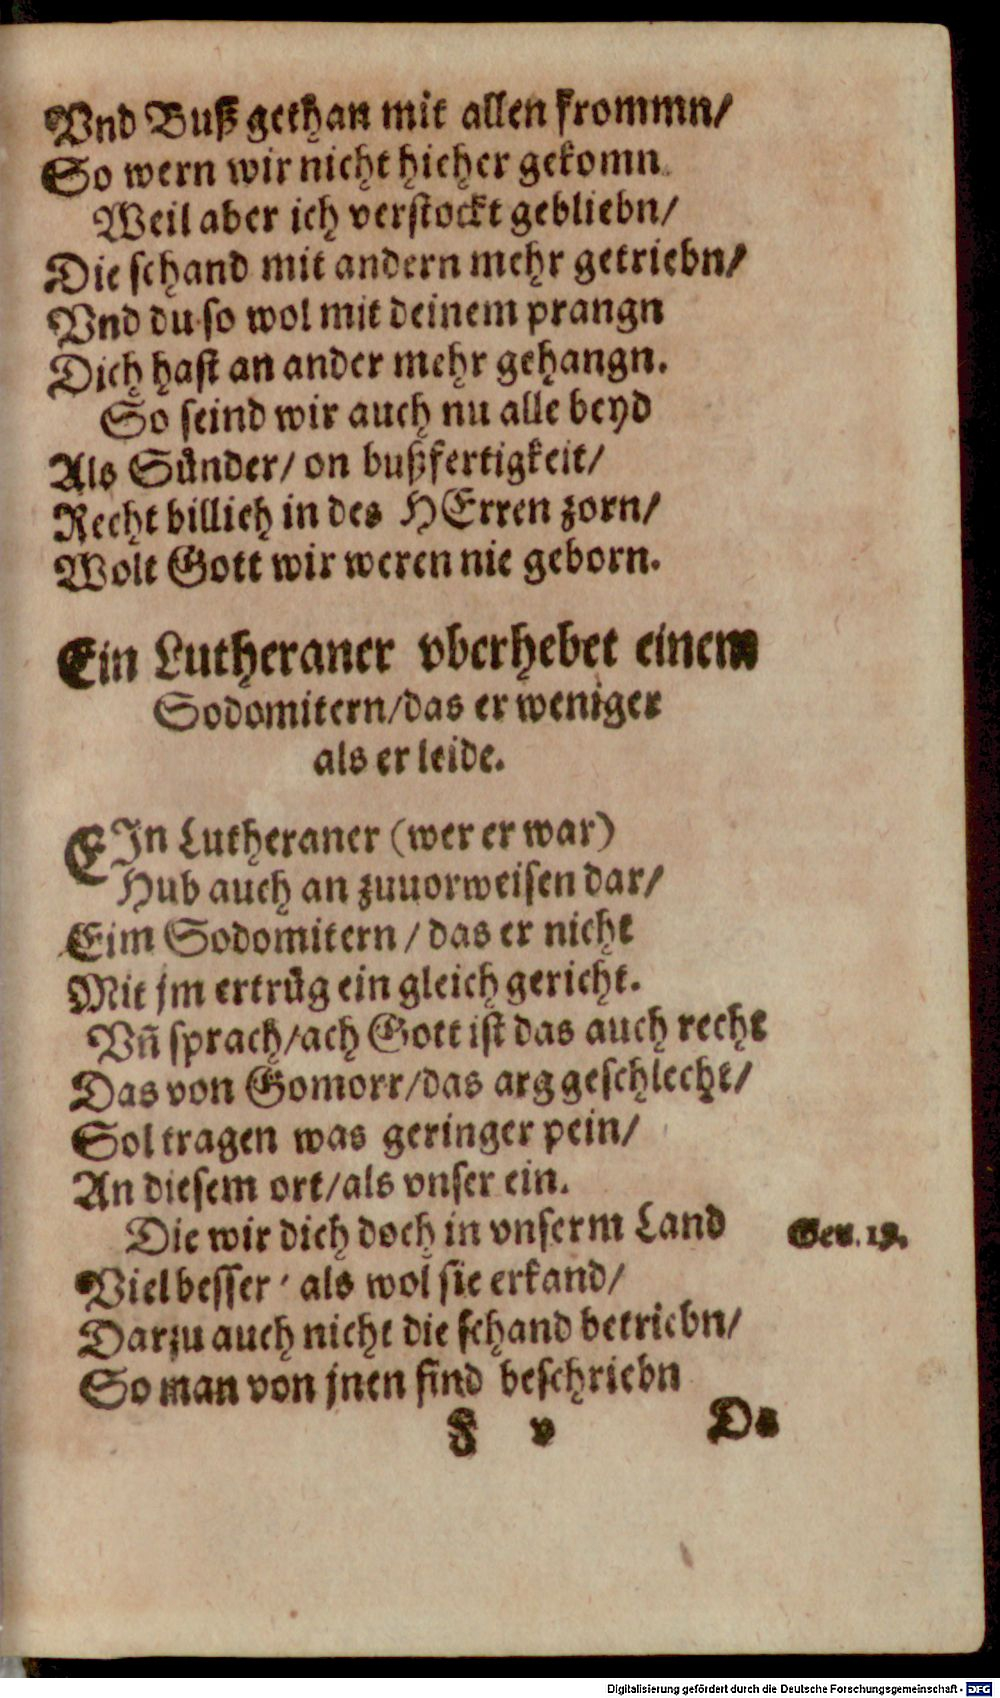 Vnd Buß gethan mit allen frommn/
So wern wir nicht hieher gekomn.
Weil aber ich verstockt gebliebn/
Die schand mit andern mehr getriebn/
Vnd du so wol mit deinem prangn
Dich hast an ander mehr gehangn.
So seind wir auch nu alle beyd
Als Sünder/ on bußfertigkeit/
Recht billich in des HErren zorn/
Wolt Gott wir weren nie geborn.
Ein Lutheraner vberhebet einem
Sodomitern/das er weniger
als er leide.
EJn Lutheraner (wer er war)
Hub auch an zuuorweisen dar/
Eim Sodomitern / das er nicht
Mit jm ertrüg ein gleich gericht.
Vñ sprach/ach Gott ist das auch recht
Das von Gomorr/das arg geschlecht/
Sol tragen was geringer pein/
An diesem ort/als vnser ein.
Die wir dich doch in vnserm Land
Gen. 19.
Viel besser / als wol sie erkand/
Darzu auch nicht die schand betriebn/
So man von jnen find beschriebn
F v Da
Digitalisierung gefördert durch die Deutsche Forschungsgemeinschaft - DFG